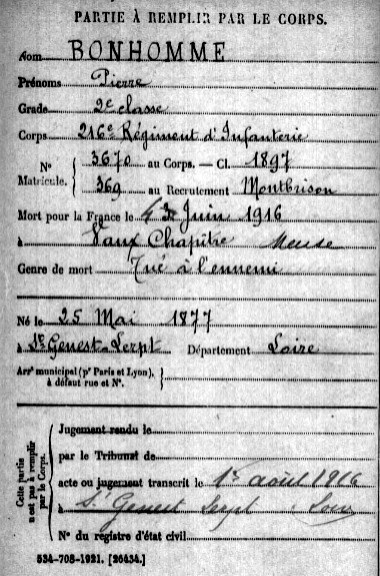 PARTIE À REMPLIR PAR LE CORPS.
Nom BONHOMME
Prénoms Pierre
Grade 2e classe
Corps 216e Régiment d'Infanterie
Nº Matricule. { 3670 au Corps. — Cl. 1897
369 au Recrutement Montbrison
Mort pour la France le 4 Juin 1916
à Vaux Chapître Meuse
Genre de mort Tué à l'ennemi
Né le 25 Mai 1877
à St Genest-Lerpt Département Loire
Arrt municipal (pr Paris et Lyon), à défaut rue et Nº. {
Cette partie n'est pas à remplir par le Corps.
Jugement rendu le
par le Tribunal de
acte ou jugement transcrit le 1er août 1916
à St Genest Lerpt Loire
Nº du registre d'état civil
534-708-1921. [26434.]